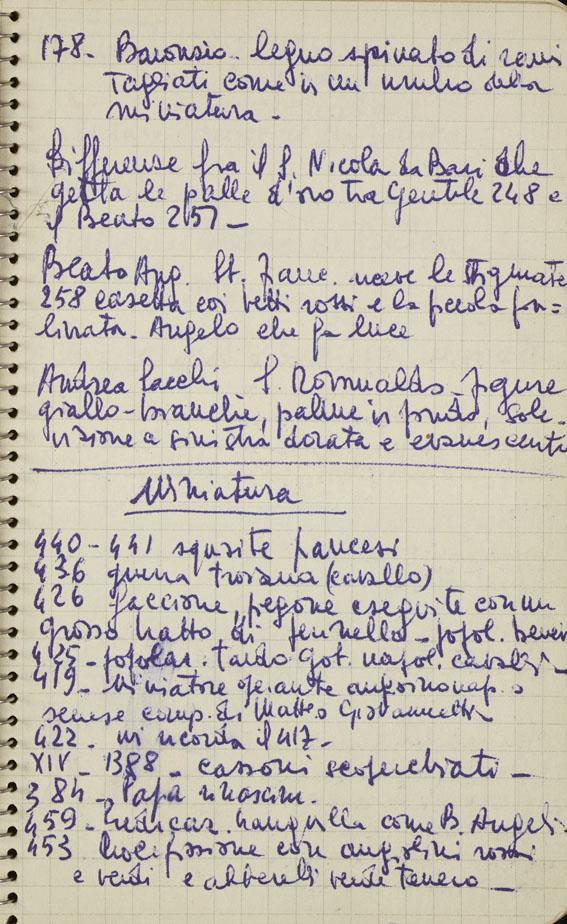 178 - Baronsio - legno spinato di remi
Tagliati come in un della
miniatura -
Differenze fra il S. Nicola da Bari che
getta le palle d'oro tra Gentile 248 e
il Beato 257 -
Beato Ang. St. Franc. riceve le stigmate
258 casetta coi tetti rossi e la piccola
Angelo che fa luce
Andrea Sacchi S. Romualdo figure
giallo-bianche, sole -
visione a sinistra dorata e evanescente
Miniatura
440 - 441 squisite francesi
436 guerra troiana (cavallo)
426 faccione, eseguite con un
grosso tratto di pennello - popol.
425 - popolar. tardo got. napol. cavalli -
419 - Miniatore angioinonap. o
senese comp. di Matteo Giovannetti
422 - mi ricorda il 417 -
XIV - 1388 - cassoni scoperchiati -
384 - Papa rinascim.
459 - tranquilla come B. Angeli
453 Crocifissione con angiolini rossi
e verdi e alberelli verde tenero -